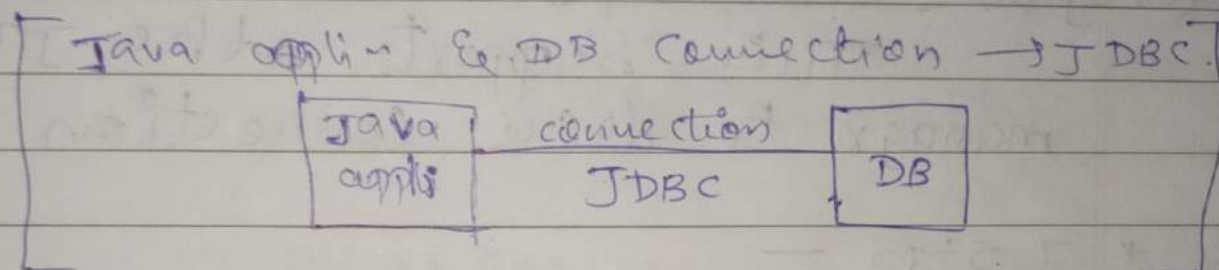 Java appli~ & DB connection → JDBC.
Java connection
appli JDBC DB